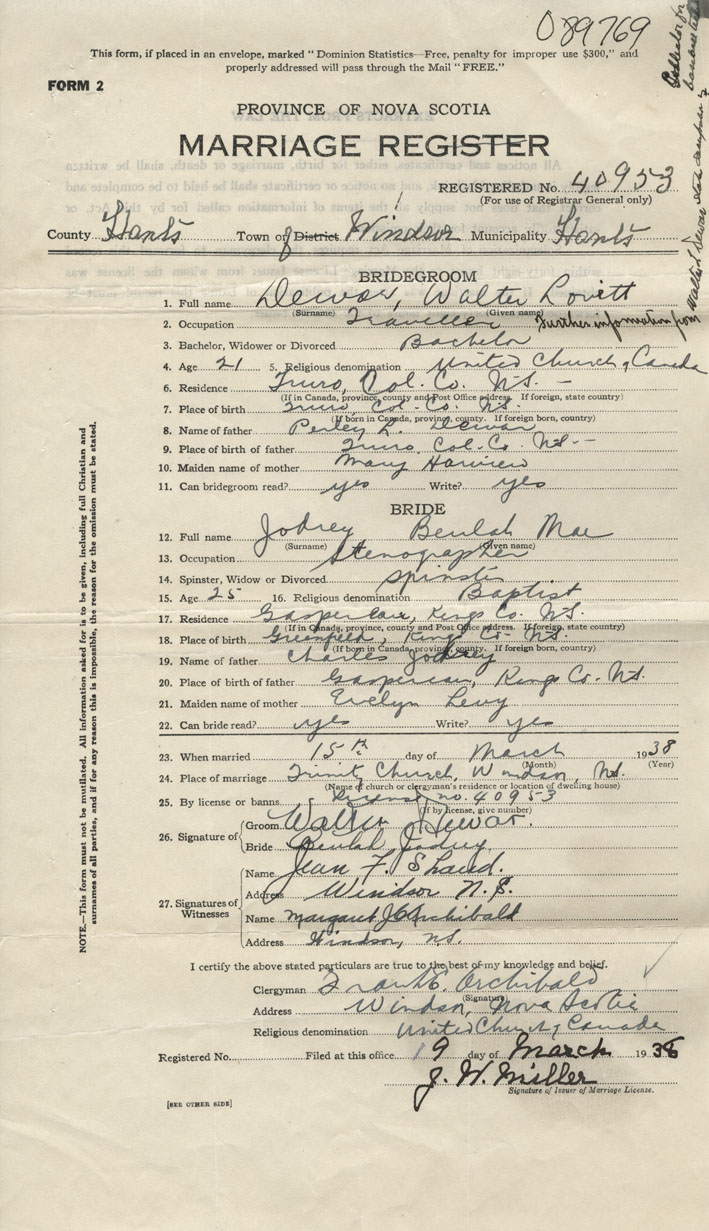 089769
This form, if placed in an envelope, marked "Dominion Statistics—Free, penalty for improper use $300," and
properly addressed will pass through the Mail "FREE."
FORM 2
PROVINCE OF NOVA SCOTIA
MARRIAGE REGISTER
REGISTERED No. 40953
(For use of Registrar General only)
County Hants Town of District Windsor Municipality Hants
BRIDEGROOM
1. Full name Dewar, Walter Lovitt
(Surname) (Given name)
2. Occupation Traveller Further information from
Walter L Dewar
3. Bachelor, Widower or Divorced Bachelor
4. Age 21 5. Religious denomination United Church of Canada
6. Residence Truro, Col. Co. N.S.
(If in Canada, province, county and Post Office address. If foreign, state country)
7. Place of birth Truro, Col. Co. N.S.
(If born in Canada, province, county. If foreign born, country)
8. Name of father Perley L. Dewar
9. Place of birth of father Truro, Col. Co. N.S.
10. Maiden name of mother Mary
11. Can bridegroom read? yes Write? yes
BRIDE
12. Full name Jodrey Beulah Mae
(Surname) (Given name)
13. Occupation Stenographer
14. Spinster, Widow or Divorced spinster
15. Age 25 16. Religious denomination Baptist
17. Residence Gaspereau, Kings Co. N.S.
(If in Canada, province, county and Post Office address. If foreign, state country)
18. Place of birth Greenfield, Kings Co. N.S.
(If born in Canada, province, county. If foreign born, country)
19. Name of father Charles Jodrey
20. Place of birth of father Gaspereau, Kings Co. N.S.
21. Maiden name of mother Evelyn Levy
22. Can bride read? yes Write? yes
23. When married 15th day of March 1938
(Month) (Year)
24. Place of marriage Trinity Church, Windsor, N.S.
(Name of church or clergyman's residence or location of dwelling house)
25. By license or banns License no. 40953
(If by license, give number)
26. Signature of Groom Walter Dewar.
Bride Beulah Jodrey
27. Signatures of Witnesses
Name Jean F. Shand.
Address Windsor N.S.
Name Margaret J. Archibald
Address Windsor, N.S.
I certify the above stated particulars are true to the best of my knowledge and belief.
Clergyman Frank E. Archibald
(Signature)
Address Windsor, Nova Scotia
Religious denomination United Church of Canada
Registered No. Filed at this office 19 day of March 1938
J. W. Miller
Signature of Issuer of Marriage License.
[SEE OTHER SIDE]
NOTE.—This form must not be mutilated. All information asked for is to be given, including full Christian and
surnames of all parties, and if for any reason this is impossible, the reason for the omission must be stated.